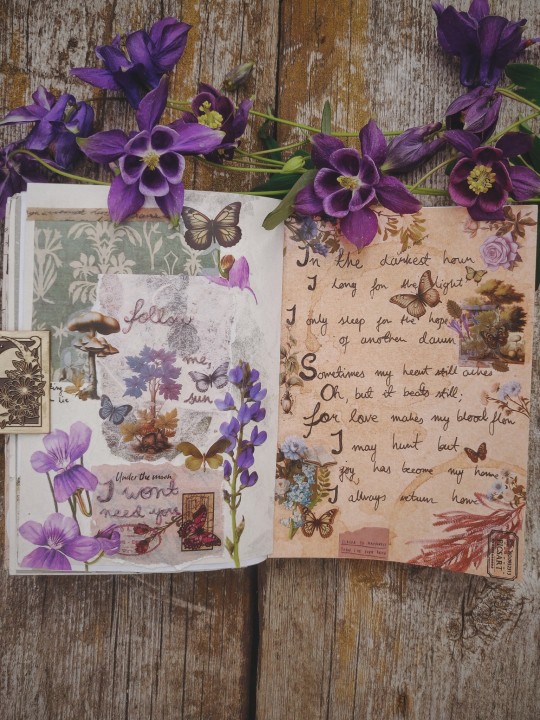 follow
me,
sun
Under the moon
I wont
need you
In the darkest hour
I long for the light
I only sleep for the hope
of another dawn
Sometimes my heart still aches
Oh, but it beats still;
for love makes my blood flow
I may hunt but
joy has become my home
I always return home